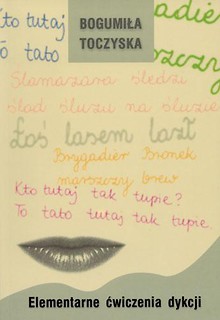 Kto tutaj
To tato
BOGUMIŁA
TOCZYSKA
gadier
szczy
Ślamazara śledzi
Ślad śluzu na śluzie
Łoś lasem lazł
Brygadier Bronek
marszczy brew
Kto tutaj tak tupie?
To tato tutaj tak tupie.
Elementarne ćwiczenia dykcji